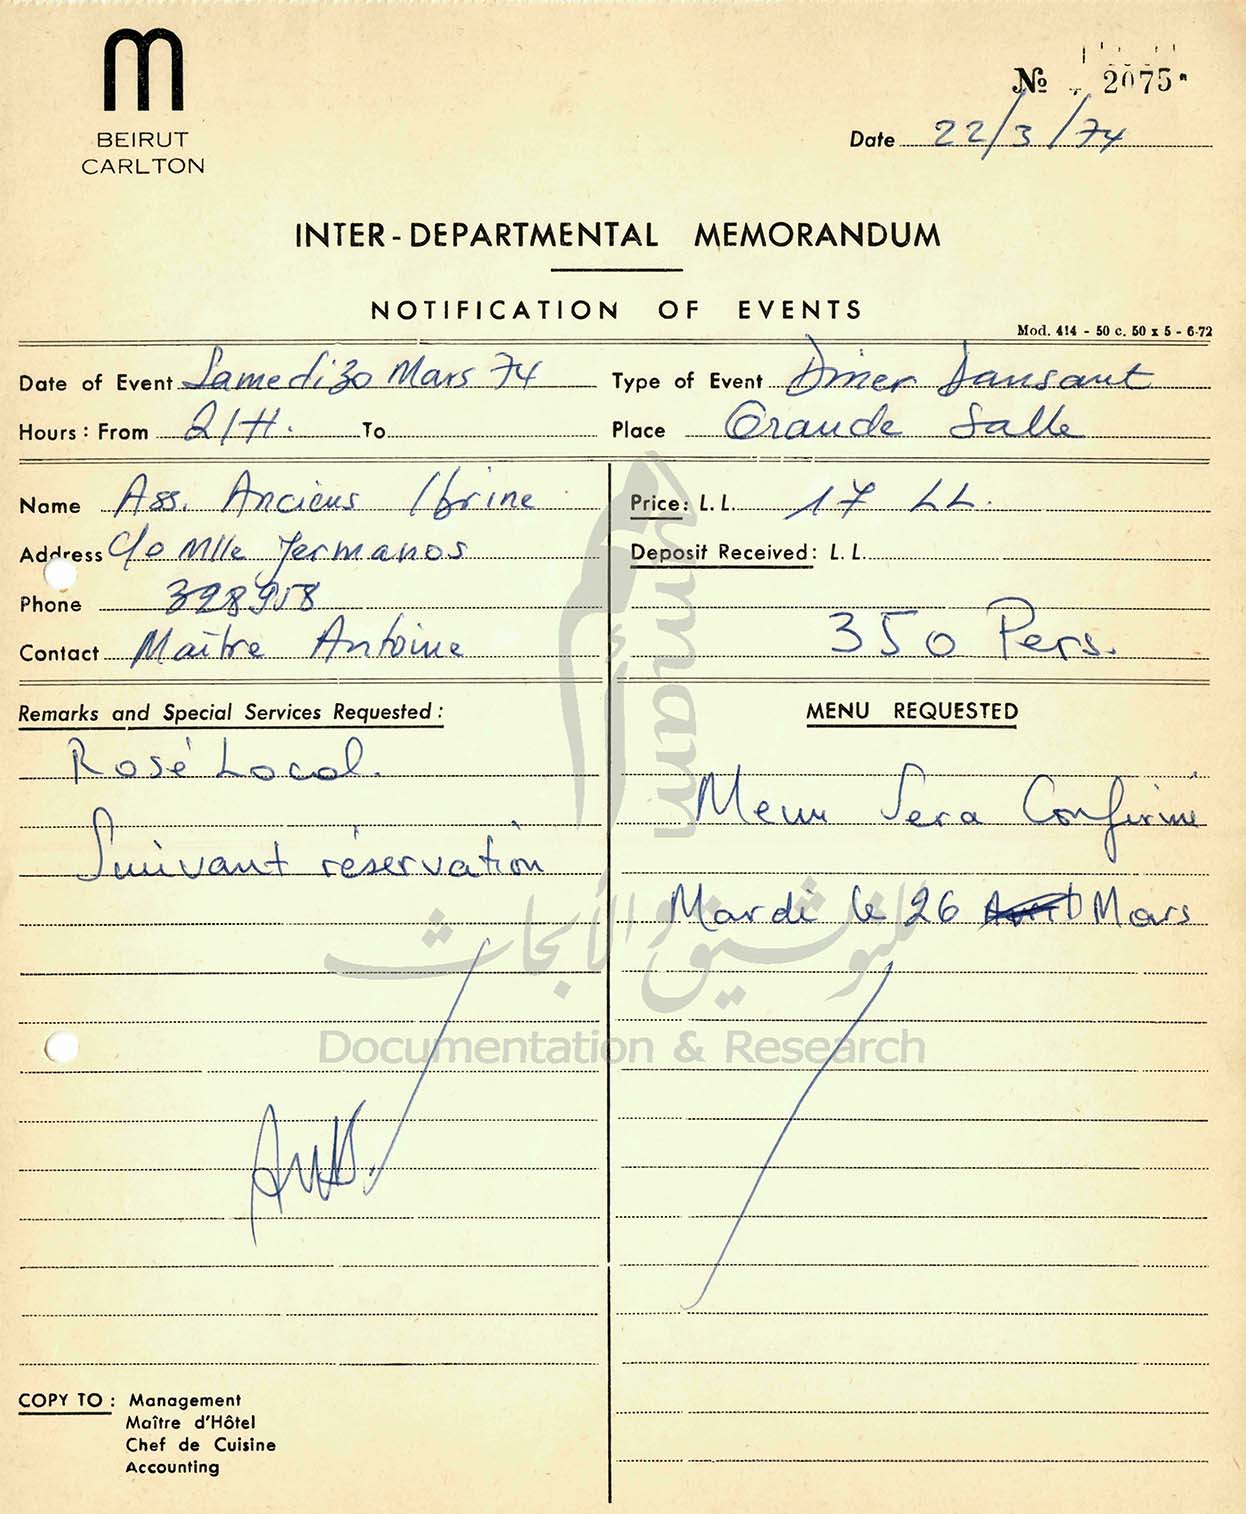 BEIRUT
CARLTON
№ 2075
Date 22/3/74
INTER-DEPARTMENTAL MEMORANDUM
NOTIFICATION OF EVENTS
Mod. 414 - 50 c. 50 x 5 - 6-72
Date of Event Samedi 30 Mars 74 Type of Event Diner Dansant
Hours: From 21H. To Place Grande Salle
Name Ass. Anciens Ibrine Price: L.L. 17 LL.
Address c/o Mlle Jermanos Deposit Received: L.L.
Phone 328958
350 Pers.
Contact Maître Antoine
Remarks and Special Services Requested: MENU REQUESTED
Rosé Local.
Menu Sera Confirmé
Suivant réservation
Mardi le 26 Mars
umam
للتوثيق والأبحاث
Documentation & Research
COPY TO: Management
Maître d'Hôtel
Chef de Cuisine
Accounting